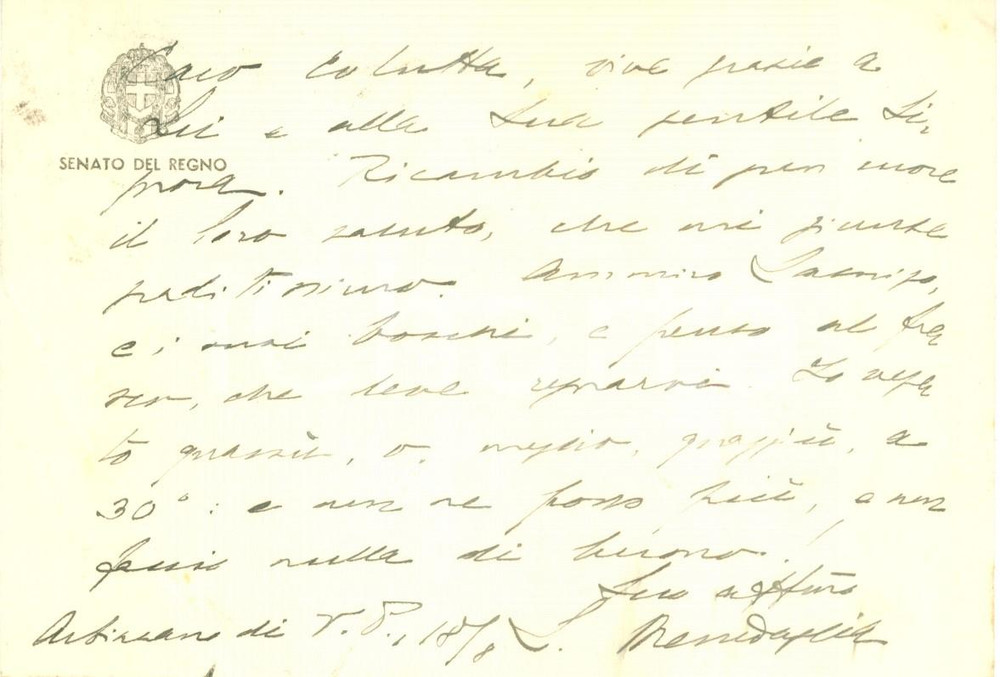 Caro Colutta, vive grazie a
Lei e alla Sua gentile Si-
SENATO DEL REGNO
gnora. Ricambio di gran cuore
il loro saluto, che mi giunse
graditissimo. Ammiro
e i suoi boschi, e penso al fre
sco, che deve regnarvi. Io vege
to quassù, o, meglio, quaggiù, a
30°: e non ne posso più, e non
faccio nulla di buono.
Suo aff.mo
Arbizzano di V. P., 18/8 L. Messedaglia